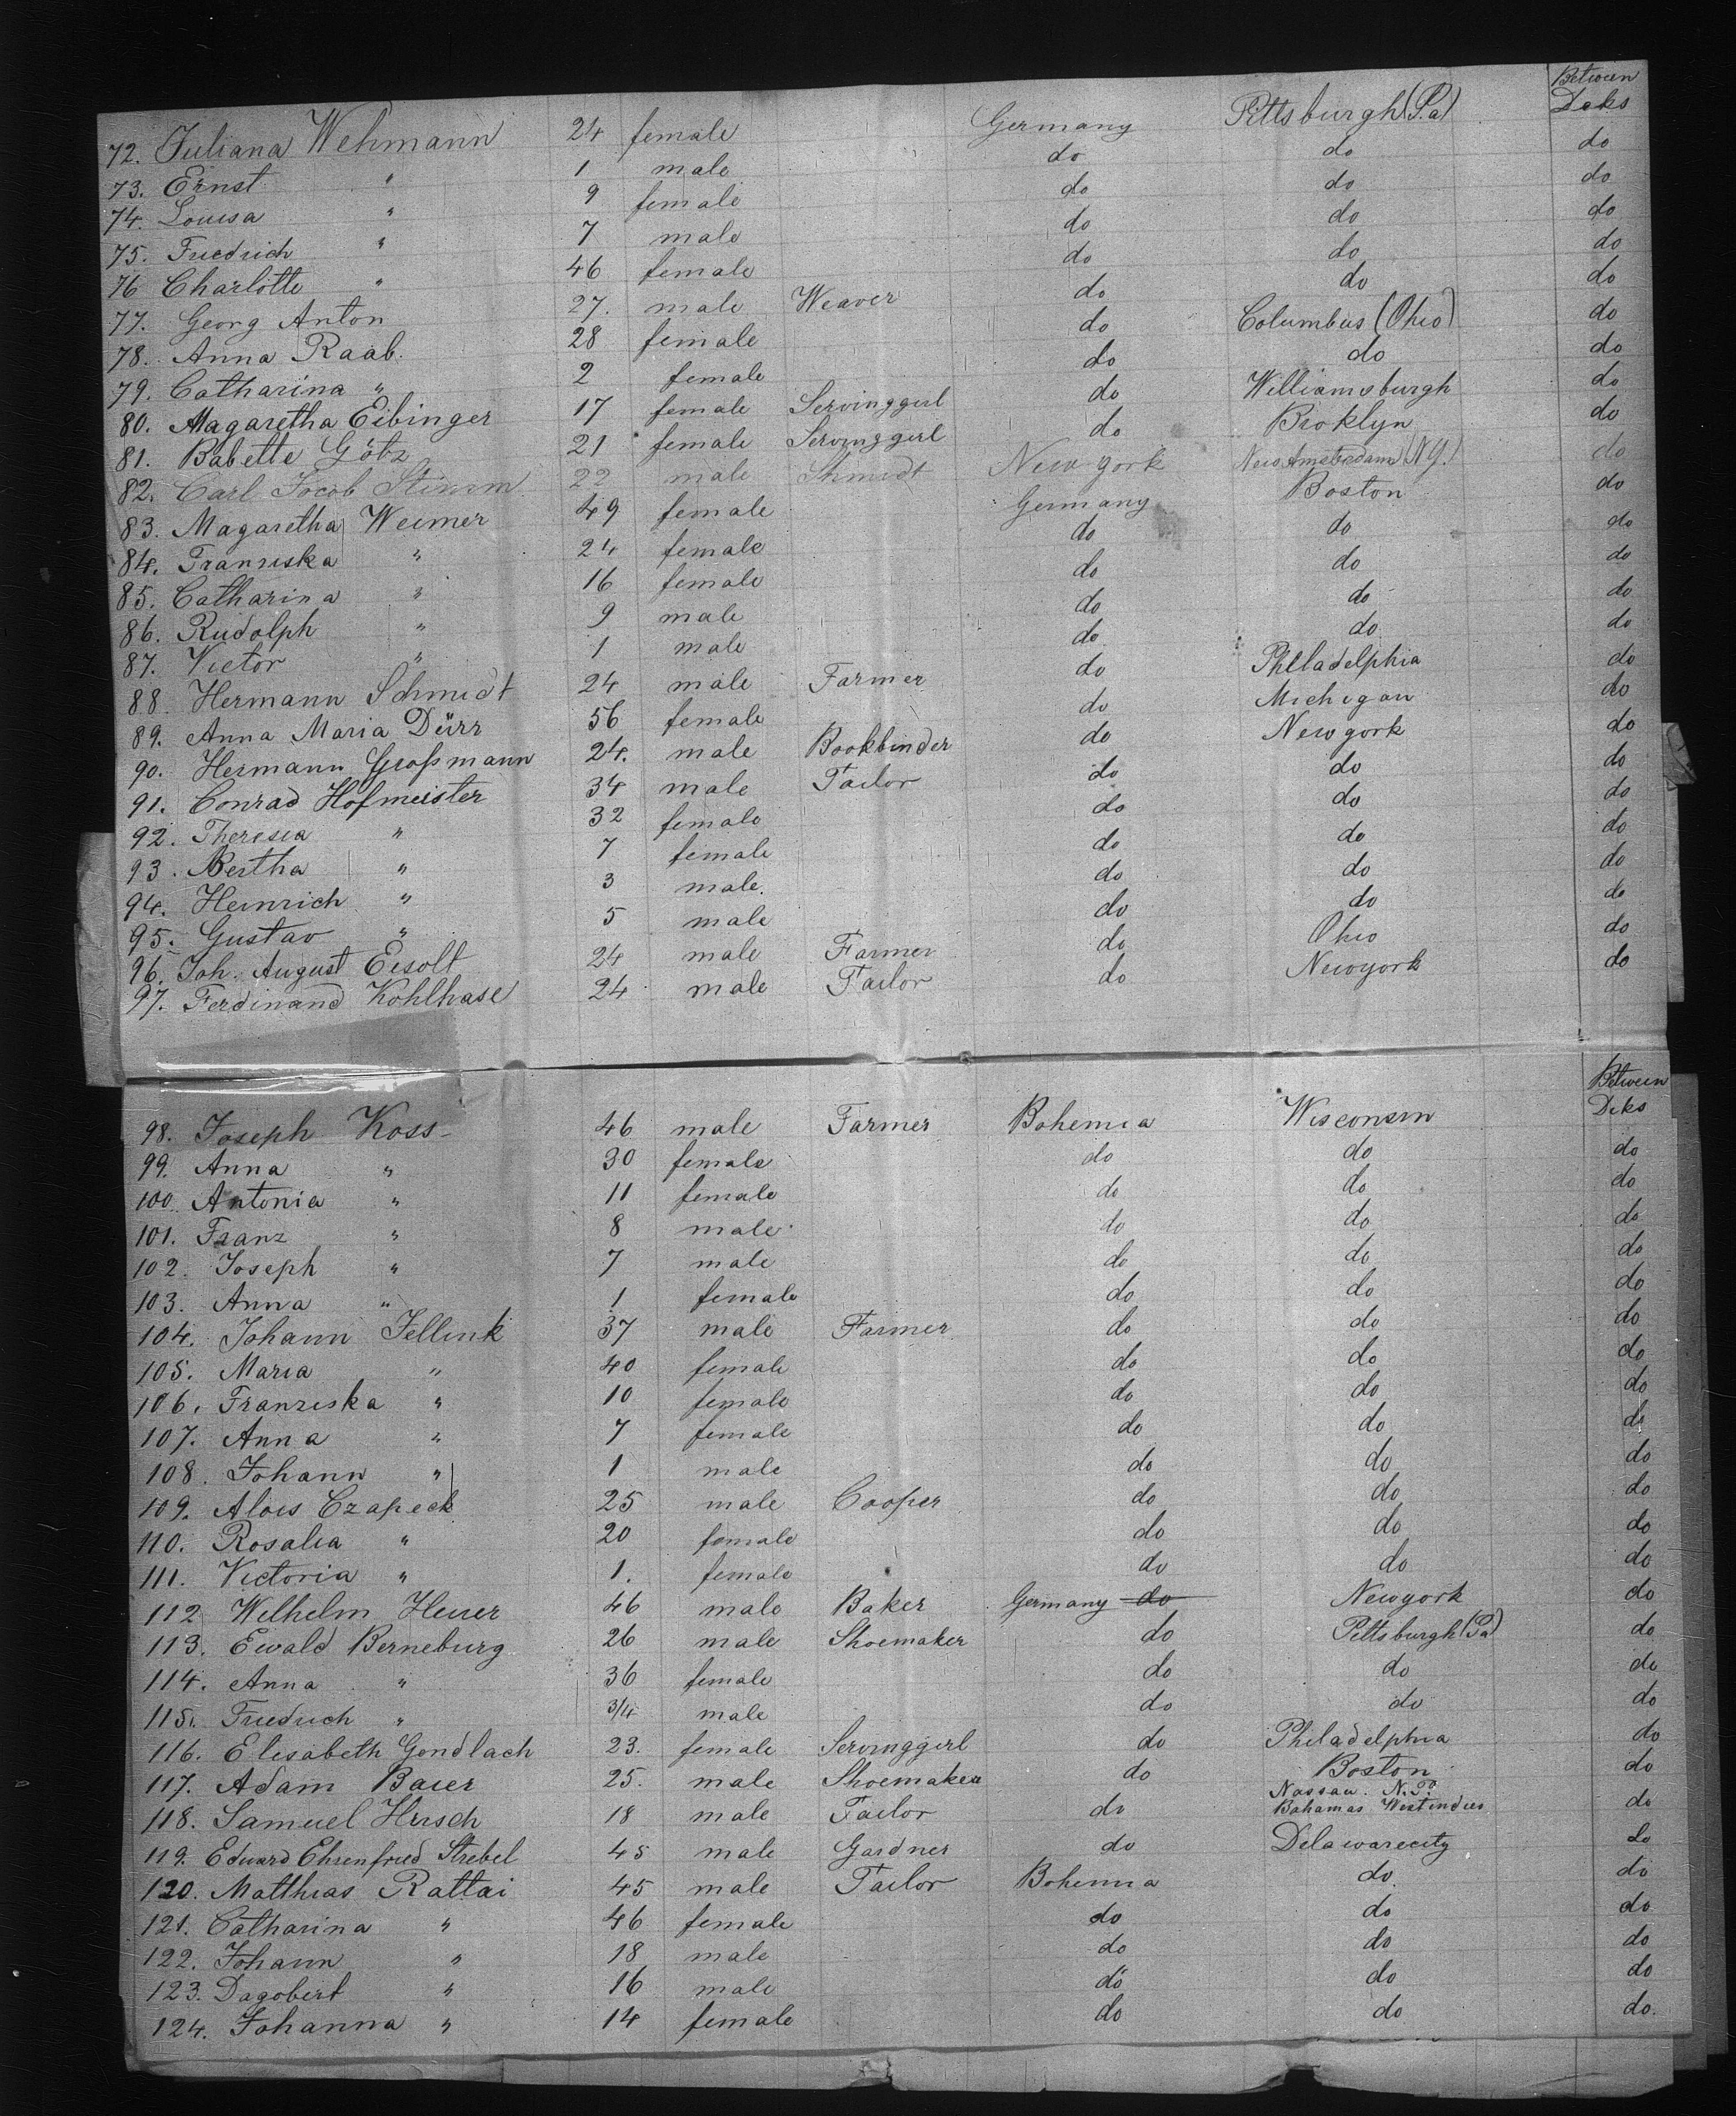 Between
72. Juliana Wehmann 24 female Germany Pittsburgh (Pa) Deks
73. Ernst " 1 male do do do
74. Louisa " 9 female do do do
75. Friedrich " 7 male do do do
76 Charlotte " 46 female do do do
77. Georg Anton 27. male Weaver do do do
78. Anna Raab. 28 female do Columbus (Ohio) do
79. Catharina " 2 female do do do
80. Magaretha Eibinger 17 female Servinggirl do Williamsburgh do
81. Babette Götz 21 female Servinggirl do Broklyn do
82. Carl Jacob Stimm 22 male Shmidt New york New Amsterdam (NY.) do
83. Magaretha Weimer 49 female Germany Boston do
84. Franziska " 24 female do do do
85. Catharina " 16 female do do do
86. Rudolph " 9 male do do do
87. Victor " 1 male do do do
88. Hermann Schmidt 24 male Farmer do Philadelphia do
89. Anna Maria Dürr 56 female do Michigan do
90. Hermann Großmann 24. male Bookbinder do New york do
91. Conrad Hofmeister 34 male Tailor do do do
92. Theresia " 32 female do do do
93. Bertha " 7 female do do do
94. Heinrich " 3 male. do do do
95. Gustav " 5 male do do do
96. Joh. August Eisolt 24 male Farmer do Ohio do
97. Ferdinand Kohlhase 24 male Tailor do Newyork do
Between
98. Joseph Koss 46 male Farmer Bohemia Wisconsin Deks
99. Anna " 30 female do do do
100. Antonia " 11 female do do do
101. Franz " 8 male do do do
102. Joseph " 7 male do do do
103. Anna " 1 female do do do
104. Johann Jellink 37 male Farmer do do do
105. Maria " 40 female do do do
106. Franziska " 10 female do do do
107. Anna " 7 female do do do
108. Johann " 1 male do do do
109. Alois Czapeck 25 male Cooper do do do
110. Rosalia " 20 female do do do
111. Victoria " 1. female do do do
112 Wilhelm Heuer 46 male Baker Germany do Newyork do
113. Ewald Berneburg 26 male Shoemaker do Pittsburgh (Pa) do
114. Anna " 36 female do do do
115. Friedrich " 3/4 male do do do
116. Elisabeth Gondlach 23. female Servinggirl do Philadelphia do
117. Adam Baier 25. male Shoemaker do Boston do
Nassau. N. P.
118. Samuel Hirsch 18 male Tailor do Bahamas Westindies do
119. Eduard Ehrenfried Strebel 45 male Gardner do Delawarecity do
120. Matthias Rattai 45 male Tailor Bohemia do do
121. Catharina " 46 female do do do
122. Johann " 18 male do do do
123. Dagobert " 16 male do do do
124. Johanna " 14 female do do do.